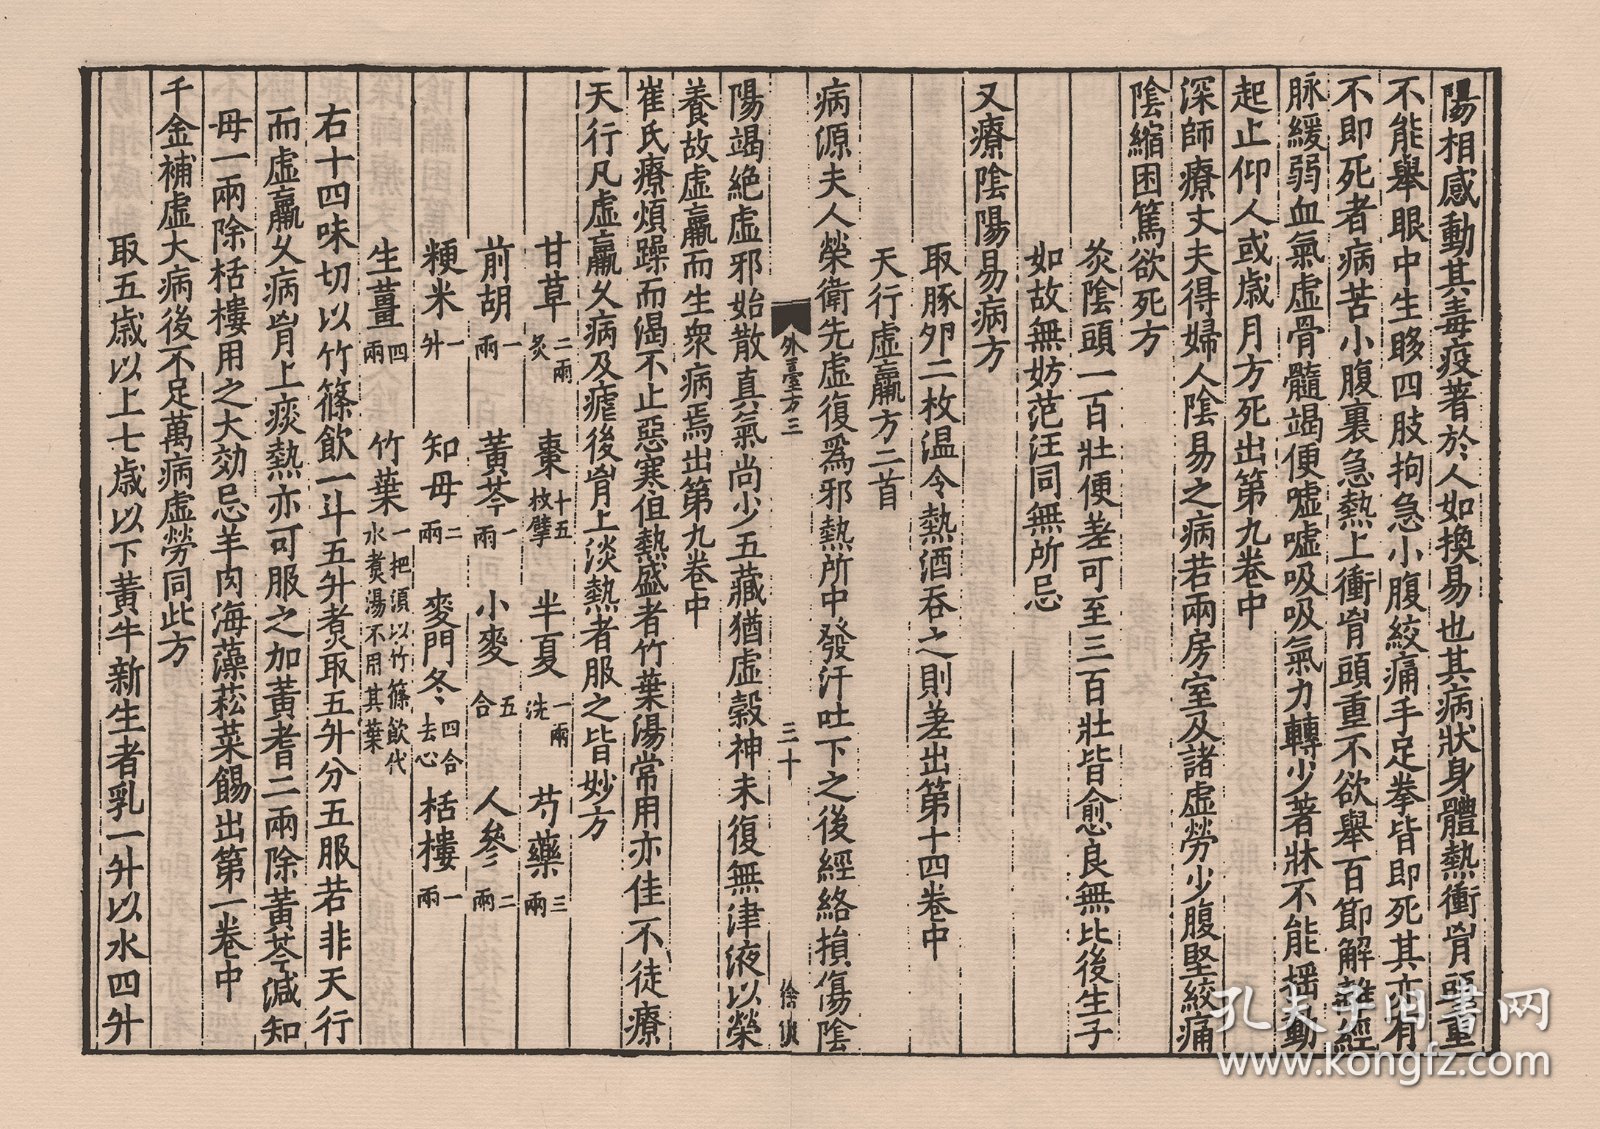 陽相感動其毒疫著於人如換易也其病狀身體熱衝胷頭重
不能舉眼中生眵四肢拘急小腹絞痛手足拳皆即死其亦有
不即死者病苦小腹裏急熱上衝胷頭重不欲舉百節解離經
脉緩弱血氣虛骨髓竭便噓噓吸吸氣力轉少著牀不能揺動
起止仰人或歲月方死出第九卷中
深師療丈夫得婦人陰易之病若兩房室及諸虛勞少腹堅絞痛
陰縮困篤欲死方
灸陰頭一百壯便差可至三百壯皆愈良無比後生子
如故無妨范汪同無所忌
又療陰陽易病方
取豚夘二枚温令熱酒吞之則差出第十四卷中
天行虛羸方二首
病源夫人榮衛先虛復爲邪熱所中發汗吐下之後經絡損傷陰
外臺方三
三十
陽竭絶虛邪始散真氣尚少五藏猶虛穀神未復無津液以榮
養故虛羸而生衆病焉出第九卷中
崔氏療煩躁而渴不止惡寒但熱盛者竹葉湯常用亦佳不徒療
天行凡虛羸久病及瘧後胷上淡熱者服之皆妙方
甘草二兩炙 棗十五枚擘 半夏一兩洗 芍藥三兩
前胡一兩 黃芩一兩 小麥五合 人參二兩
粳米一升 知母二兩 麥門冬四合去心 栝樓一兩
生薑四兩 竹葉一把須以竹篠飲代水煑湯不用其葉
右十四味切以竹篠飲一斗五升煑取五升分五服若非天行
而虛羸久病胷上痰熱亦可服之加黃耆二兩除黃芩減知
母一兩除栝樓用之大効忌羊肉海藻菘菜餳出第一卷中
千金補虛大病後不足萬病虛勞同此方
取五歲以上七歲以下黃牛新生者乳一升以水四升
孔夫子旧書网
www.kongfz.com